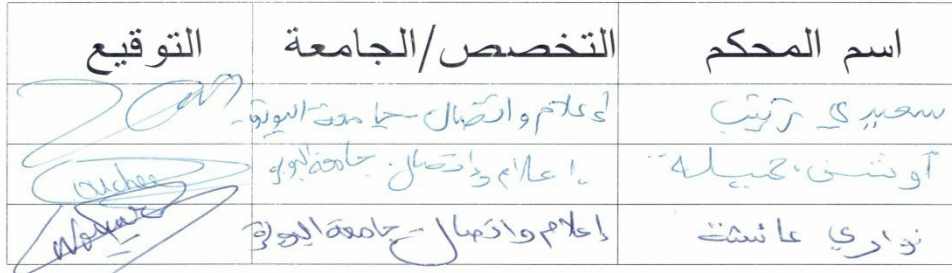 اسم المحكم التخصص/الجامعة التوقيع
سعيدي زينب إعلام واتصال - جامعة البويرة
أوشن جميلة إعلام واتصال - جامعة البويرة
نواري عائشة إعلام واتصال - جامعة البويرة